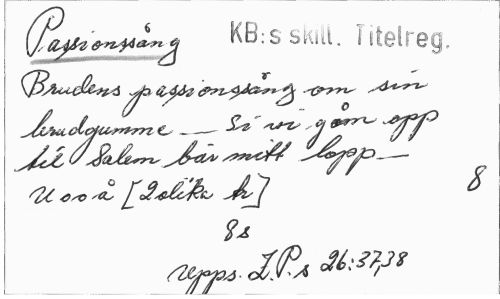 Passionssång KB:s skill. Titelreg.
Brudens passionssång om sin
brudgumme — Si vi gåm opp
til Salem bär mitt lopp —
U o o å [2 olika tr] 8
8 s
Upps. Z.P.s 26:37,38